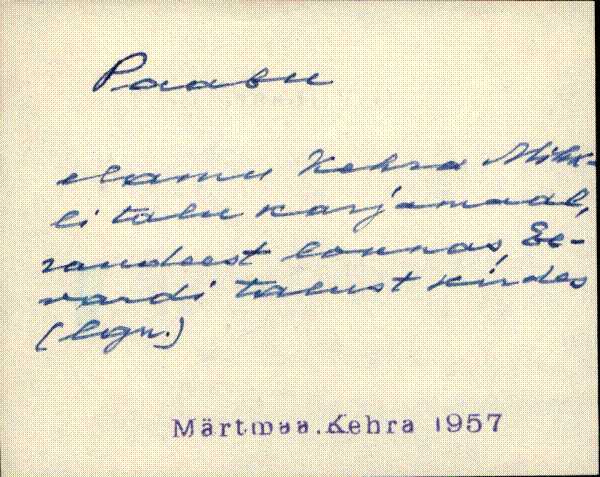 Paabu
elamu Kehra Mihk-
li talu karjamaal,
raudteest lõunas, Ee-
vardi talust kirdes
(lgn.)
Märtmaa. Kehra 1957